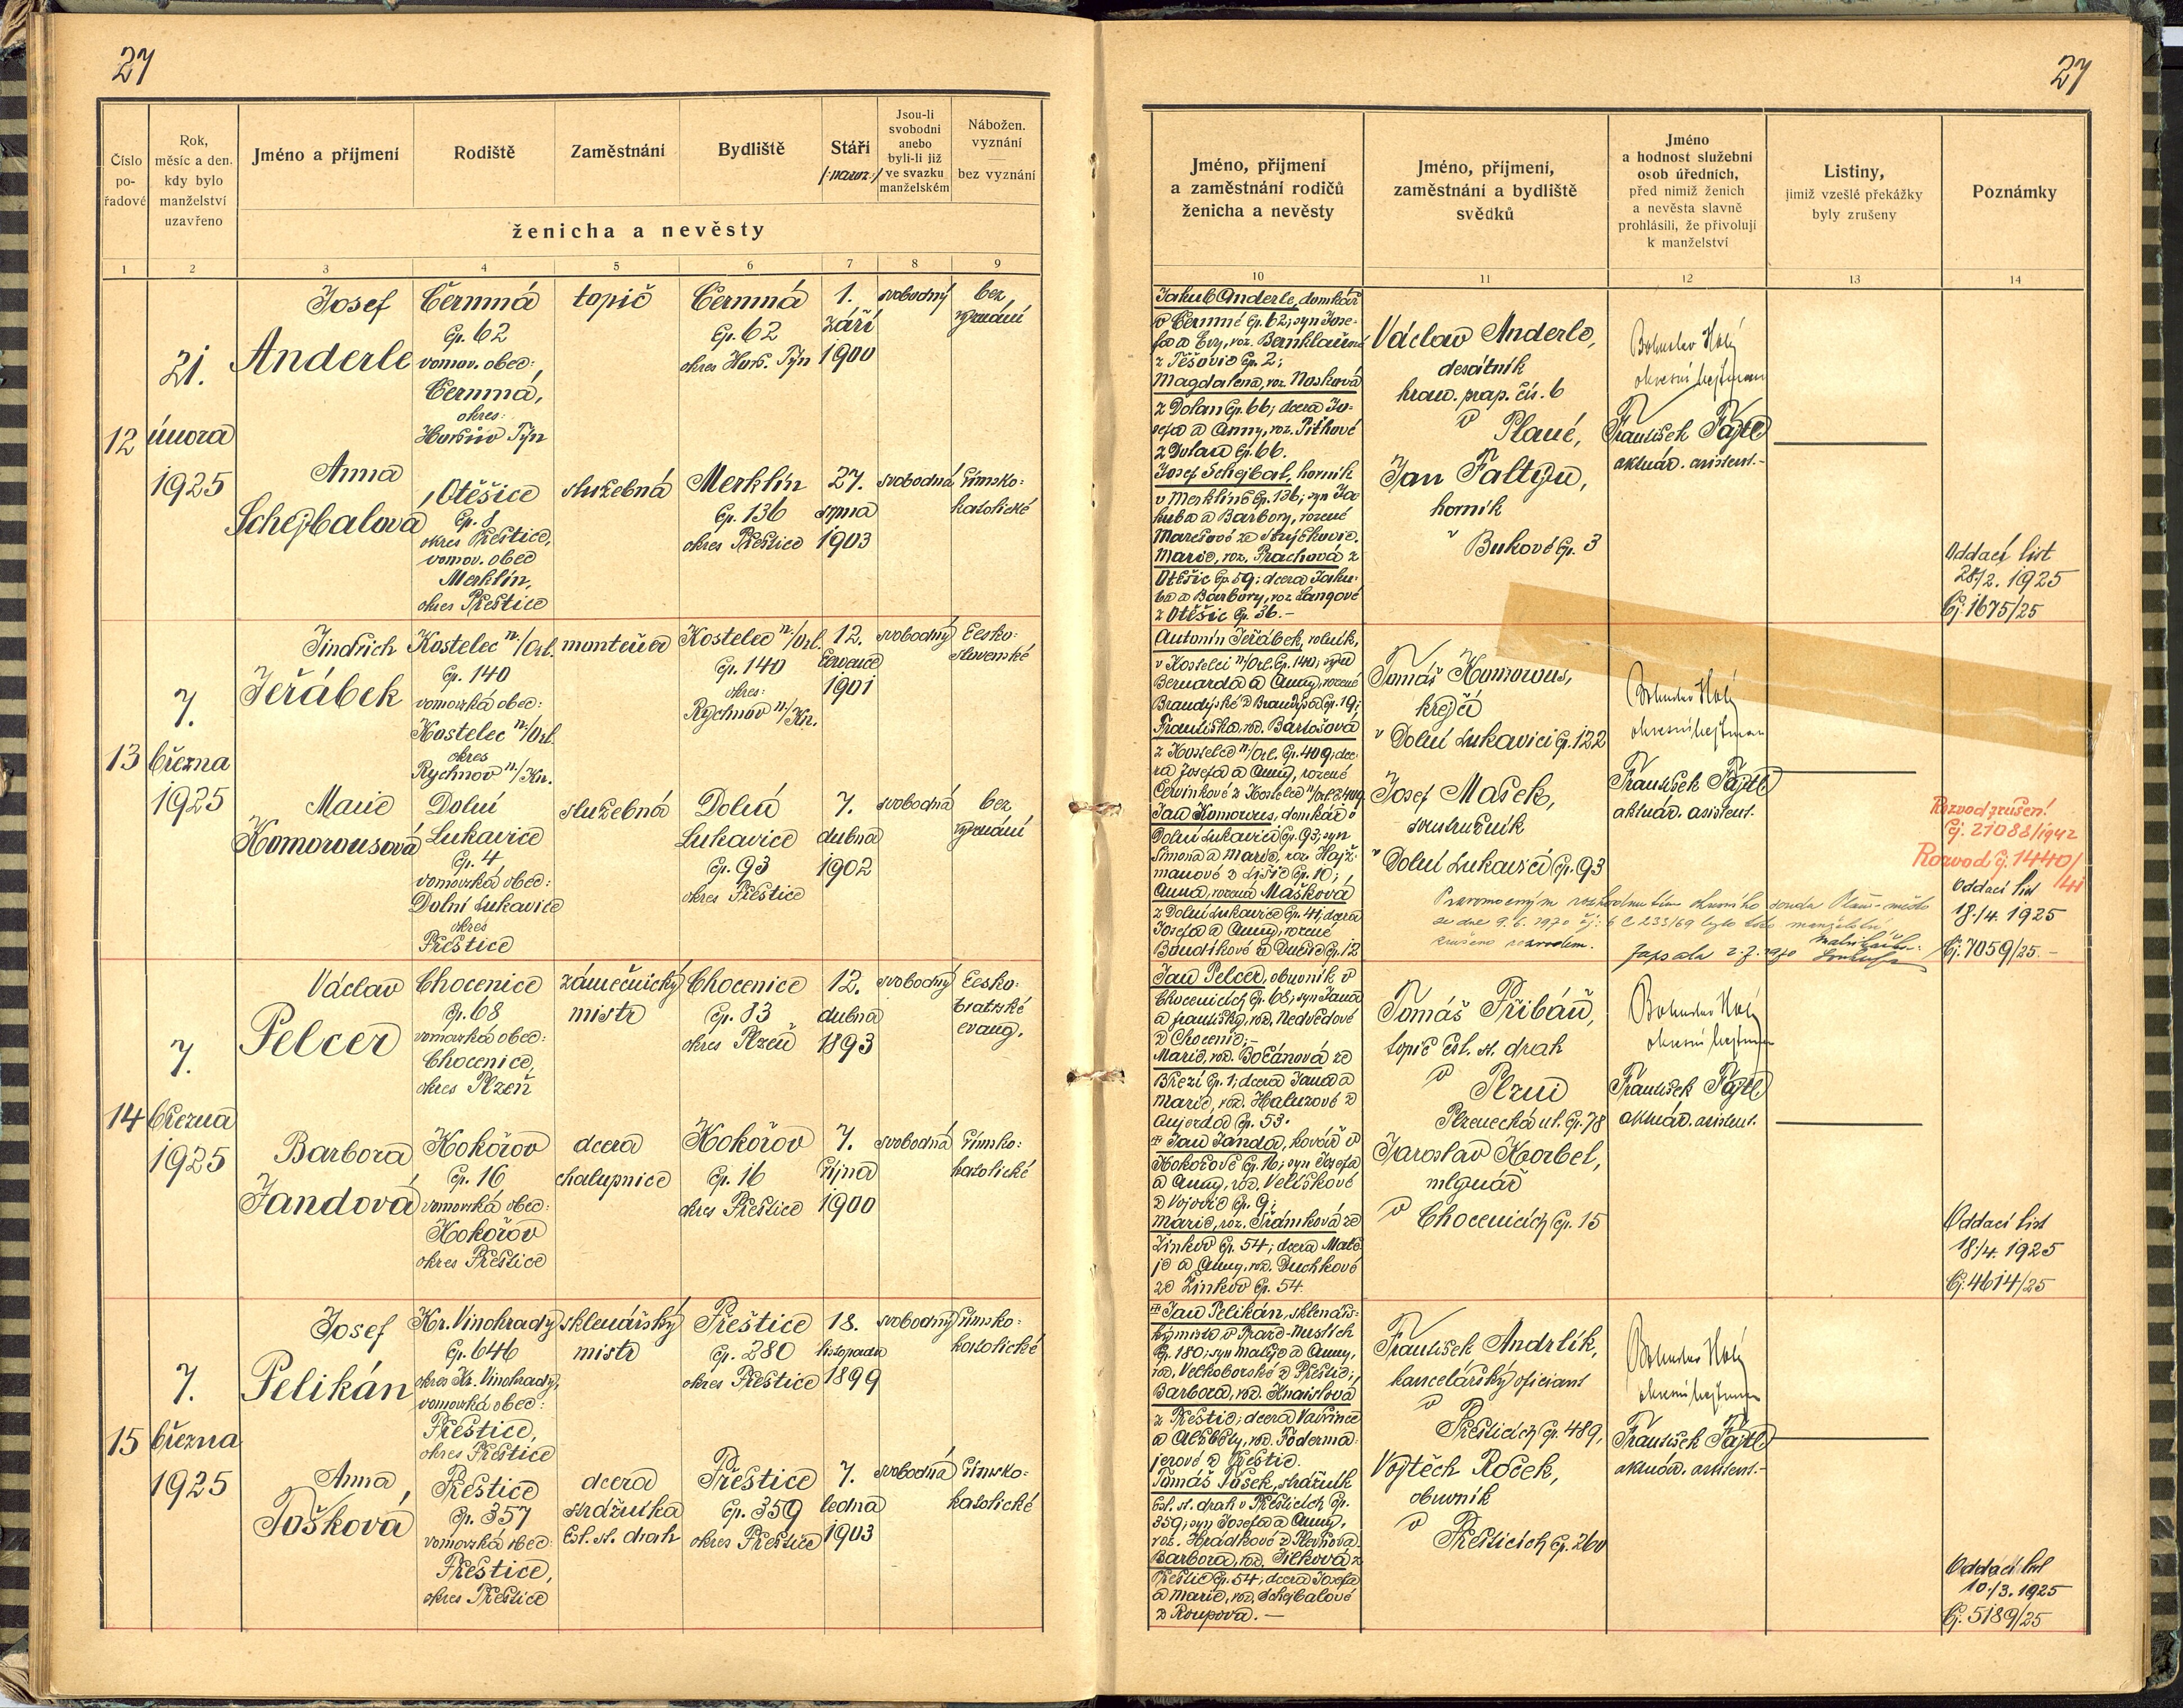 27
27
Číslo po-řadové
Rok, měsíc a den, kdy bylo manželství uzavřeno
Jméno a příjmení
Rodiště
Zaměstnání
Bydliště
Stáří
/:naroz.:/
Jsou-li svobodni anebo byli-li již ve svazku manželském
Nábožen. vyznání — bez vyznání
ženicha a nevěsty
1 2 3 4 5 6 7 8 9
Jméno, příjmení
a zaměstnání rodičů
ženicha a nevěsty
Jméno, příjmení,
zaměstnání a bydliště
svědků
Jméno
a hodnost služební
osob úředních,
před nimiž ženich
a nevěsta slavně
prohlásili, že přivolují
k manželství
Listiny,
jimiž vzešlé překážky
byly zrušeny
Poznámky
10 11 12 13 14
12
21.
února
1925
Josef
Anderle
Čermná
čp. 62
domov. obec:
Čermná,
okres:
Horšův Týn
topič
Čermná
čp. 62
okres Horš. Týn
1.
září
1900
svobodný
bez
vyznání
Anna
Schejbalová
Otěšice
čp. 8
okres Přeštice,
domov. obec
Merklín,
okres Přeštice
služebná
Merklín
čp. 136
okres Přeštice
27.
srpna
1903
svobodná
římsko-
katolické
Jakub Anderle, domkář
v Čermné čp. 62; syn Jose-
z Těšovic čp. 2;
Magdalena, roz. Nosková
z Dolan čp. 66; dcera Jo-
sefa a Anny, roz. Pithové
z Dolan čp. 66.
Josef Schejbal, horník
v Merklíně čp. 136; syn Ja-
kuba a Barbory, rozené
Marie, roz. Prachová z
Otěšic čp. 59; dcera Jaku-
ba a Barbory, roz. Langové
z Otěšic čp. 36.-
Václav Anderle,
desátník
hran. prap. čís. 6
v Plané,
Jan Faltýn,
horník
v Bukové čp. 3
Bohuslav Holý
okresní hejtman
František Fajtl
aktuár. asistent.-
Oddací list
28./2. 1925
čj. 1675/25
13
7.
března
1925
Jindřich
Jeřábek
Kostelec n:/Orl.
čp. 140
domovská obec:
Kostelec n:/Orl.
okres
Rychnov n:/Kn.
montér
Kostelec n:/Orl.
čp. 140
okres:
Rychnov n:/Kn.
12.
července
1901
svobodný
česko-
slovenské
Marie
Komorousová
Dolní
Lukavice
čp. 4,
domovská obec:
Dolní Lukavice
okres
Přeštice
služebná
Dolní
Lukavice
čp. 93
okres Přeštice
7.
dubna
1902
svobodná
bez
vyznání
Antonín Jeřábek, rolník,
v Kostelci n:/Orl. čp. 140; syn
Bernarda a Anny, rozené
Františka, roz. Bartošová
z Kostelce n:/Orl. čp. 409; dce-
ra Josefa a Anny, rozené
Červinkové z Kostelce n:/Orl. č. 409
Jan Komorous, domkář v
Dolní Lukavici čp. 93; syn
Šimona a Marie, roz. Hajž-
manové z Lišic čp. 10;
Anna, rozená Mašková
z Dolní Lukavice čp. 41; dcera
Josefa a Anny, rozené
Tomáš Komorous,
krejčí
v Dolní Lukavici čp. 122
Josef Mašek,
soustružník
v Dolní Lukavici čp. 93
Bohuslav Holý
okresní hejtman
František Fajtl
aktuár. asistent.
Rozvod zrušen!
čj. 21088/1942
Rozvod čj. 1440/
/41
Oddací list
18./4. 1925
čj. 7059/25.-
Pravomocným rozhodnutím okresního soudu Plzeň-město
ze dne 9. 6. 1970 čj: 6 C 233/69 bylo toto manželství
zrušeno rozvodem.
Zapsala 2. 7. 1970
14
7.
března
1925
Václav
Pelcer
Chocenice
čp. 68
domovská obec:
Chocenice,
okres Plzeň
zámečnický
mistr
Chocenice
čp. 83
okres Plzeň
12.
dubna
1893
svobodný
česko-
bratrské
evang.
Barbora
Jandová
Kokořov
čp. 16
domovská obec:
Kokořov
okres Přeštice
dcera
chalupnice
Kokořov
čp. 16
okres Přeštice
7.
října
1900
svobodná
římsko-
katolické
Jan Pelcer, obuvník v
Chocenicích čp. 68; syn Jana
a Františky, roz. Nedvědové
z Chocenic;-
Marie, roz. Bočanová ze
Březí čp. 1; dcera Jana a
Marie, roz. Haluzové z
Aujezda čp. 53.
Jan Janda, kovář v
Kokořově čp. 16; syn Josefa
a Anny, roz. Velíškové
z Vojovic čp. 9;
Marie, roz. Šrámková ze
Žinkov čp. 54; dcera Matě-
je a Anny, roz. Duchkové
ze Žinkov čp. 54.
Tomáš Přibáň,
topič čsl. st. drah
v Plzni
Plzenecká ul. čp. 78
Jaroslav Korbel,
mlynář
v Chocenicích čp. 15
Bohuslav Holý
okresní hejtman
František Fajtl
aktuár. asistent.
Oddací list
18./4. 1925
čj. 4614/25
15
7.
března
1925
Josef
Pelikán
Kr. Vinohrady
čp. 646
okres Kr. Vinohrady,
domovská obec:
Přeštice,
okres Přeštice
sklenářský
mistr
Přeštice
čp. 280
okres Přeštice
18.
listopadu
1899
svobodný
římsko-
katolické
Anna
Tošková
Přeštice
čp. 357
domovská obec:
Přeštice,
okres Přeštice
dcera
strážníka
čsl. st. drah
Přeštice
čp. 359
okres Přeštice
7.
ledna
1903
svobodná
římsko-
katolické
Jan Pelikán, sklenářs-
ký mistr v Praze-Nuslích
čp. 180; syn Matěje a Anny,
roz. Velkoborské z Přeštic;
z Přeštic; dcera Vavřince
a Alžběty, roz. Föderma-
jerové z Přeštic.
Tomáš Tošek, strážník
čsl. st. drah v Přešticích čp.
359; syn Josefa a Anny,
roz. Hrádkové z Plevňova.
Barbora, roz. Jílková z
Přeštic čp. 54; dcera Josefa
a Marie, roz. Schejbalové
z Roupova.-
František Andrlík,
kancelářský oficiant
v
Přešticích čp. 489,
Vojtěch Roček,
obuvník
v
Přešticích čp. 260
Bohuslav Holý
okresní hejtman
František Fajtl
aktuár. asistent.-
Oddací list
10./3. 1925
čj. 5189/25